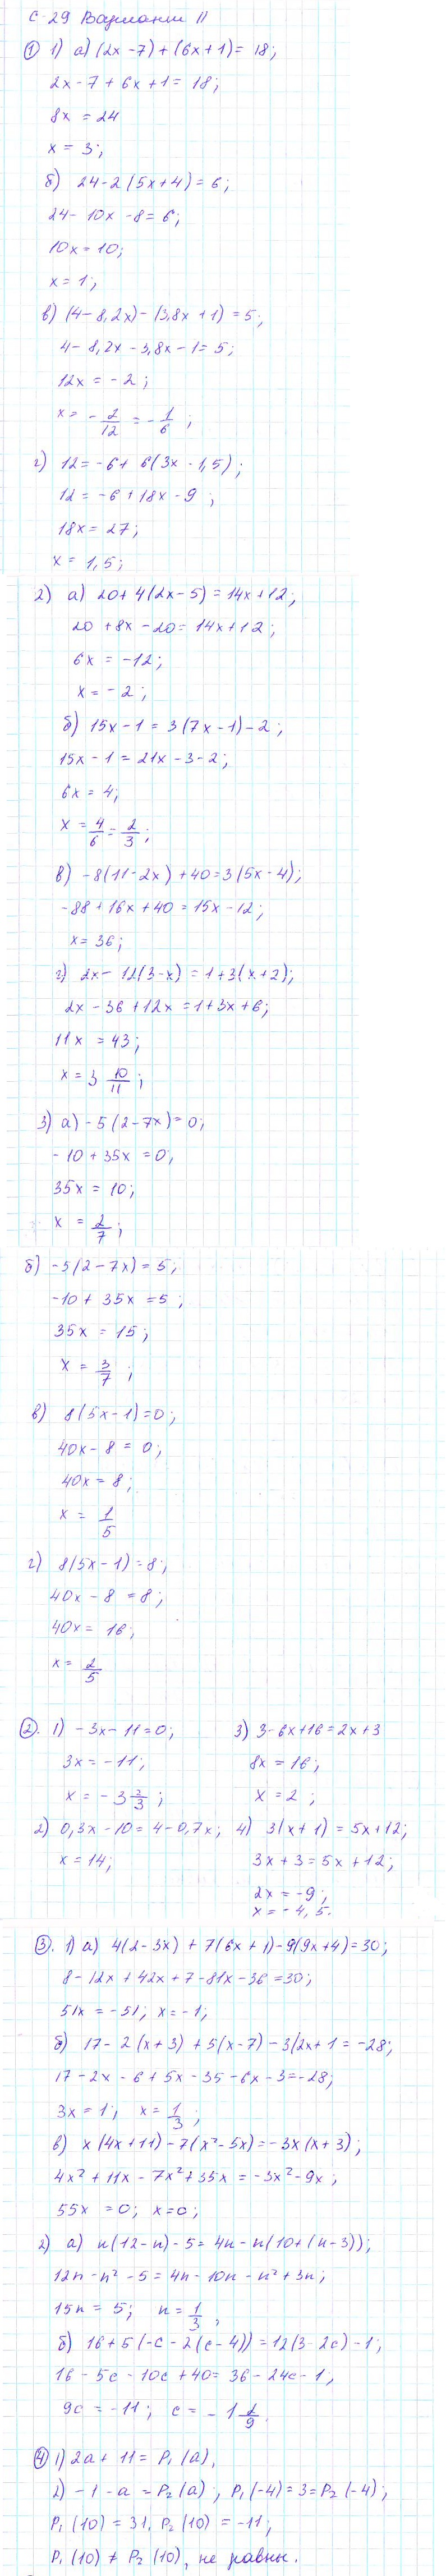 С-29 Вариант II
① 1) а) (2x-7)+(6x+1)=18;
2x-7+6x+1=18;
8x=24
x=3;
б) 24-2(5x+4)=6;
24-10x-8=6;
10x=10;
x=1;
в) (4-8,2x)-(3,8x+1)=5;
4-8,2x-3,8x-1=5;
12x=-2;
x=-2/12=-1/6;
г) 12=-6+6(3x-1,5);
12=-6+18x-9;
18x=27;
x=1,5;
2) а) 20+4(2x-5)=14x+12;
20+8x-20=14x+12;
6x=-12;
x=-2;
б) 15x-1=3(7x-1)-2;
15x-1=21x-3-2;
6x=4;
x=4/6=2/3;
в) -8(11-2x)+40=3(5x-4);
-88+16x+40=15x-12;
x=36;
г) 2x-12(3-x)=1+3(x+2);
2x-36+12x=1+3x+6;
11x=43;
x=3 10/11;
3) а) -5(2-7x)=0;
-10+35x=0;
35x=10;
x=2/7;
б) -5(2-7x)=5;
-10+35x=5;
35x=15;
x=3/7;
в) 8(5x-1)=0;
40x-8=0;
40x=8;
x=1/5
г) 8(5x-1)=8;
40x-8=8;
40x=16;
x=2/5
②. 1) -3x-11=0;
3x=-11;
x=-3 2/3;
2) 0,3x-10=4-0,7x;
x=14;
3) 3-6x+16=2x+3
8x=16;
x=2;
4) 3(x+1)=5x+12;
3x+3=5x+12;
2x=-9;
x=-4,5.
③. 1) а) 4(2-3x)+7(6x+1)-9(9x+4)=30;
8-12x+42x+7-81x-36=30;
51x=-51; x=-1;
б) 17-2(x+3)+5(x-7)-3(2x+1=-28;
17-2x-6+5x-35-6x-3=-28;
3x=1; x=1/3;
в) x(4x+11)-7(x²-5x)=-3x(x+3);
4x²+11x-7x²+35x=-3x²-9x;
55x=0; x=0;
2) а) n(12-n)-5=4n-n(10+(n-3));
12n-n²-5=4n-10n-n²+3n;
15n=5; n=1/3;
б) 16+5(-c-2(c-4))=12(3-2c)-1;
16-5c-10c+40=36-24c-1;
9c=-11; c=-1 2/9.
④ 1) 2a+11=P₁(a),
2) -1-a=P₂(a); P₁(-4)=3=P₂(-4);
P₁(10)=31, P₂(10)=-11;
P₁(10)≠P₂(10), не равны.